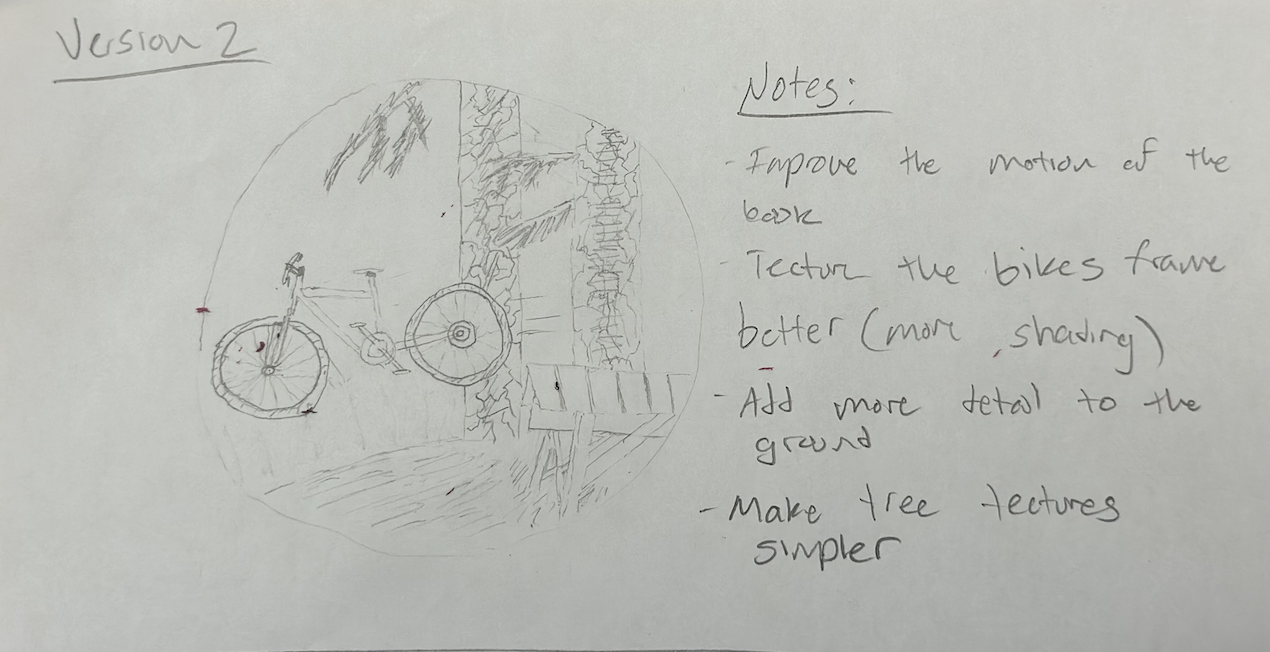 Version 2
Notes:
- Improve the motion of the
book
- Tectur the bikes frame
better (more shading)
- Add more detail to the
ground
- Make tree tectures
simpler